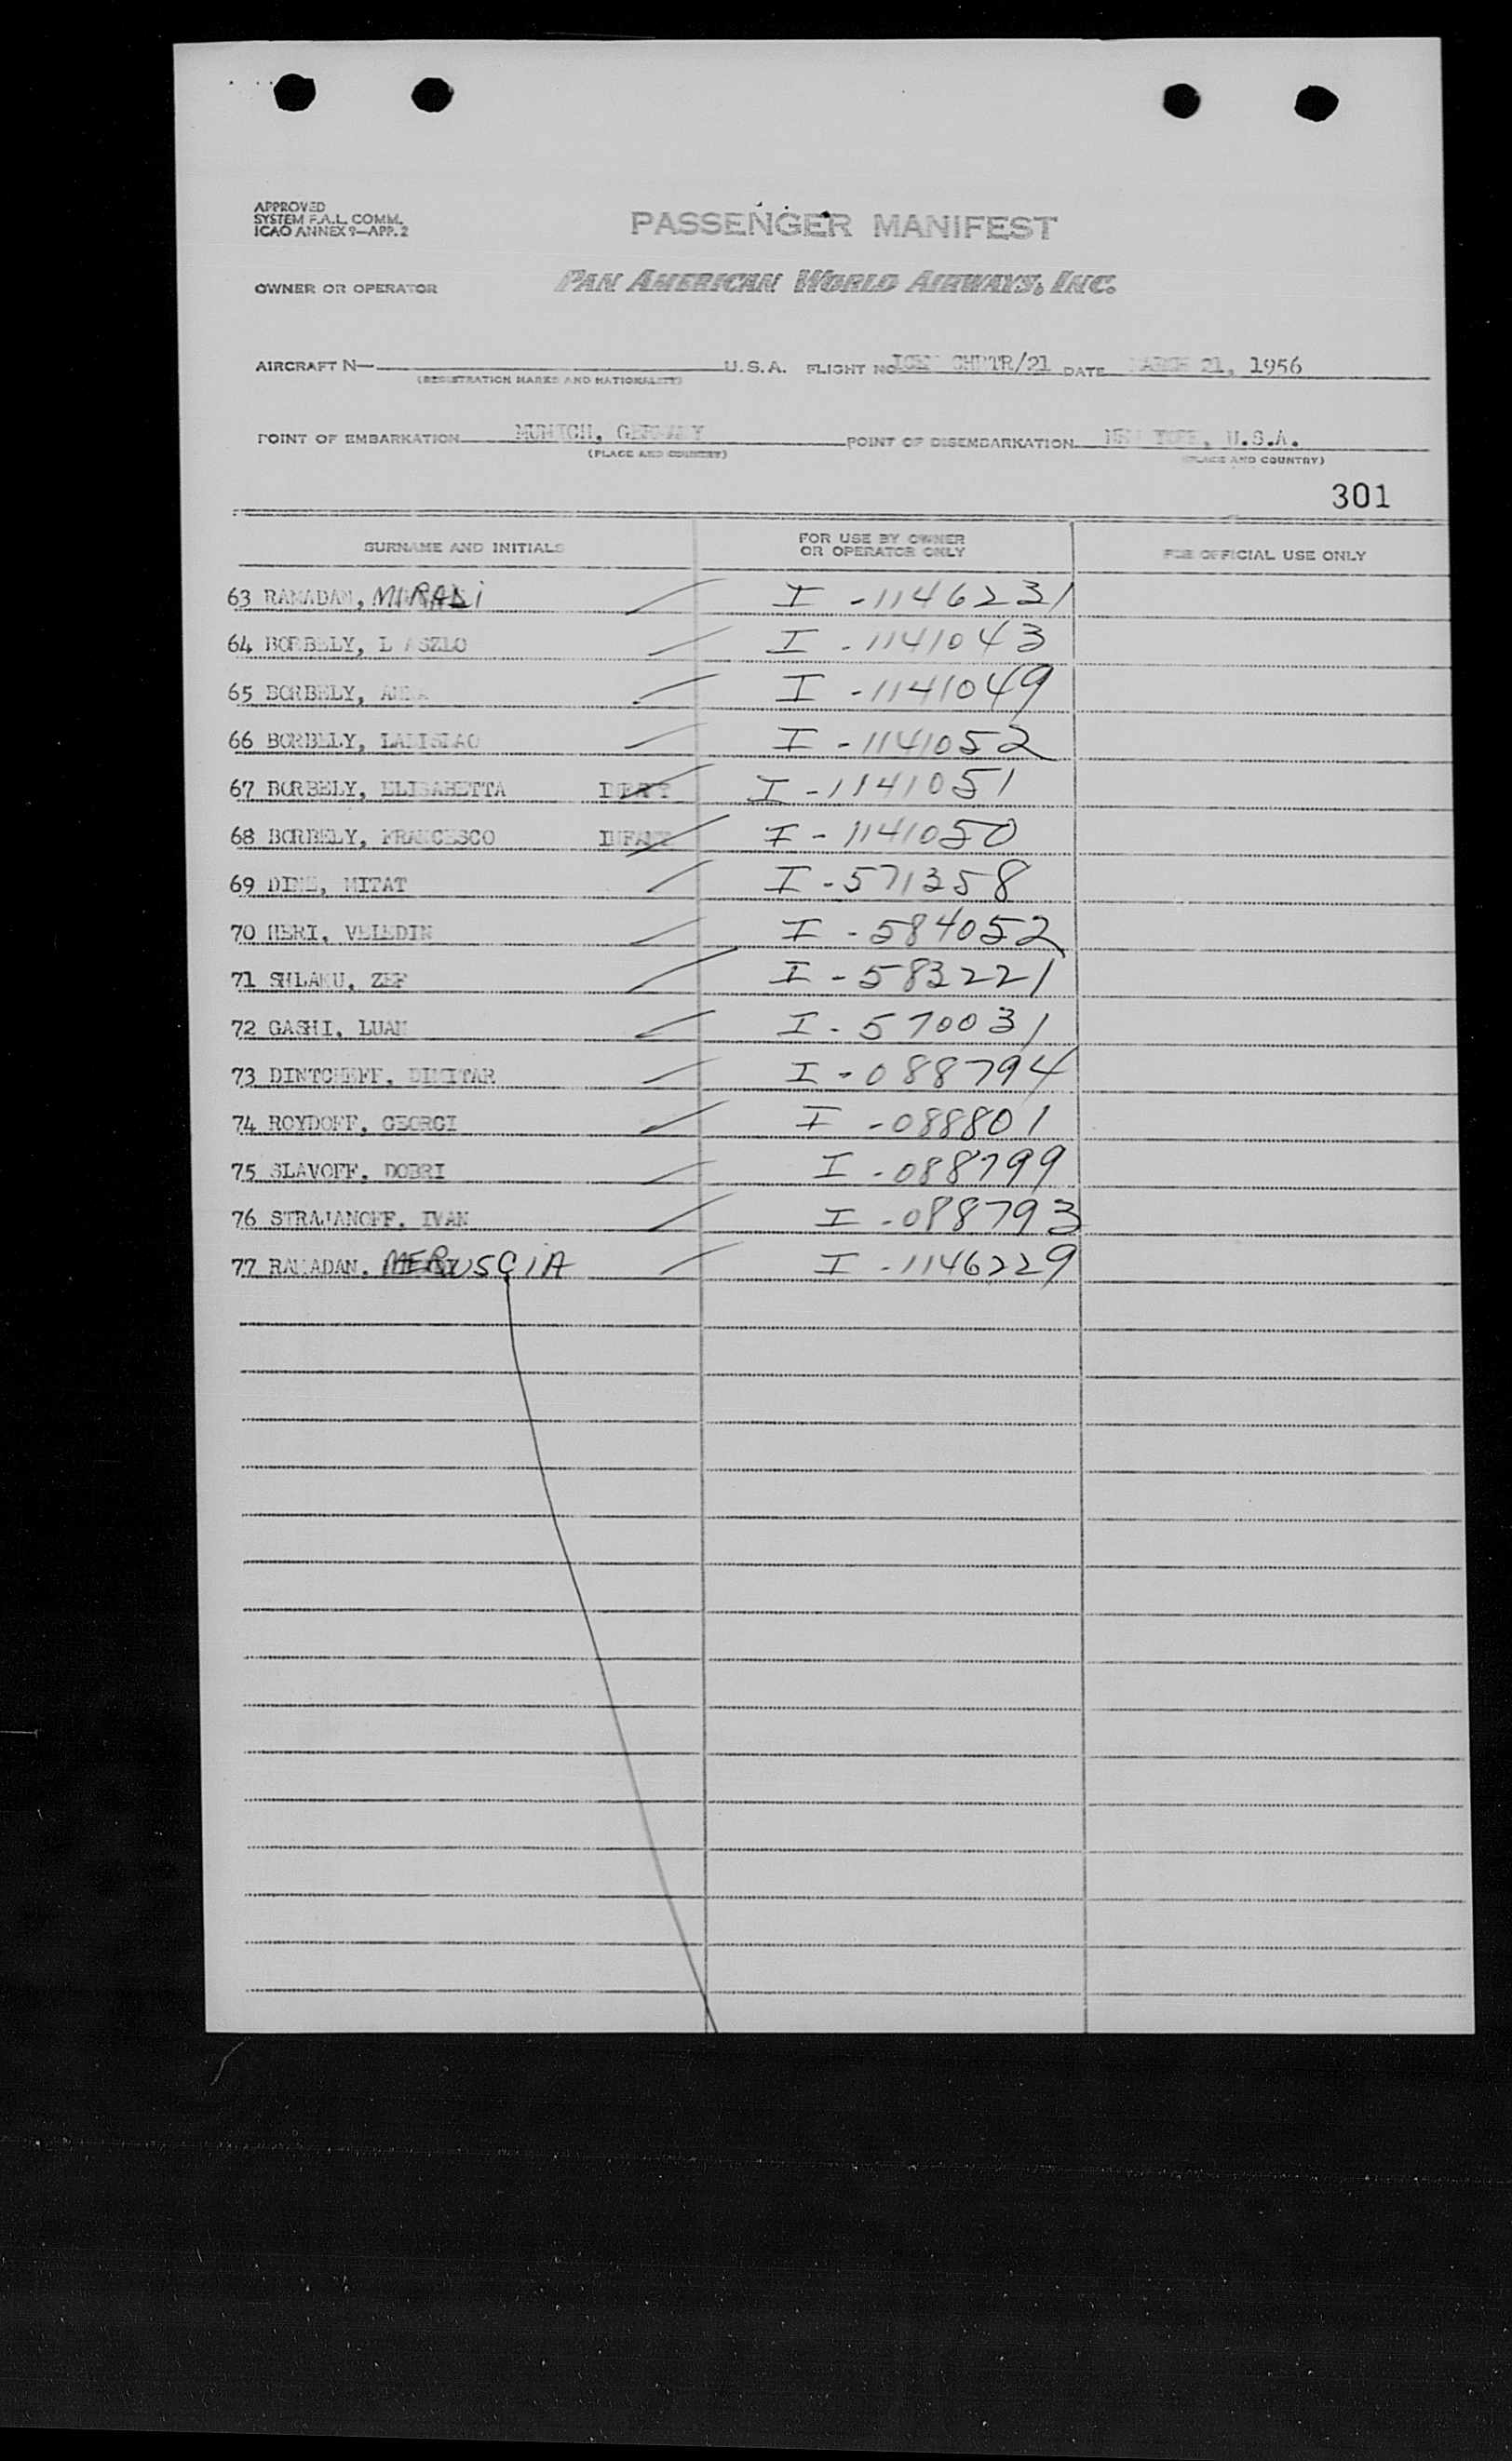 APPROVED
SYSTEM F.A.L. COMM.
ICAO ANNEX 9—APP. 2
PASSENGER MANIFEST
OWNER OR OPERATOR PAN AMERICAN WORLD AIRWAYS, INC.
AIRCRAFT N— U.S.A. FLIGHT NO ICEM CHRTR/21 DATE MARCH 21, 1956
(REGISTRATION MARKS AND NATIONALITY)
POINT OF EMBARKATION MUNICH, GERMANY POINT OF DISEMBARKATION NEW YORK, U.S.A.
(PLACE AND COUNTRY) (PLACE AND COUNTRY)
301
SURNAME AND INITIALS FOR USE BY OWNER OR OPERATOR ONLY FOR OFFICIAL USE ONLY
63 RAMADAN, MURADI I -1146231
64 BORBELY, LASZLO I -1141043
65 BORBELY, ANNA I -1141049
66 BORBELY, LADISLAO I -1141052
67 BORBELY, ELISABETTA INFANT I -1141051
68 BORBELY, FRANCESCO INFANT I - 1141050
69 DINE, MITAT I -571358
70 HERI, VELEDIN I - 584052
71 SHLAKU, ZEF I - 583221
72 GASHI, LUAN I - 570031
73 DINTCHEFF, DIMITAR I - 088794
74 ROYDOFF, GEORGI I -088801
75 SLAVOFF, DOBRI I -088799
76 STRAJANOFF, IVAN I -088793
77 RAMADAN, MERUSCIA I -1146229